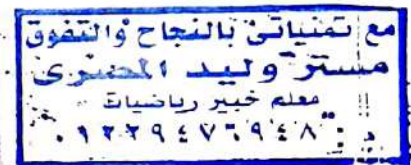 مع تمنياتى بالنجاح والتفوق
مستر وليد المصرى
معلم خبير رياضيات
٠١٢٢٩٤٧٦٩٤٨